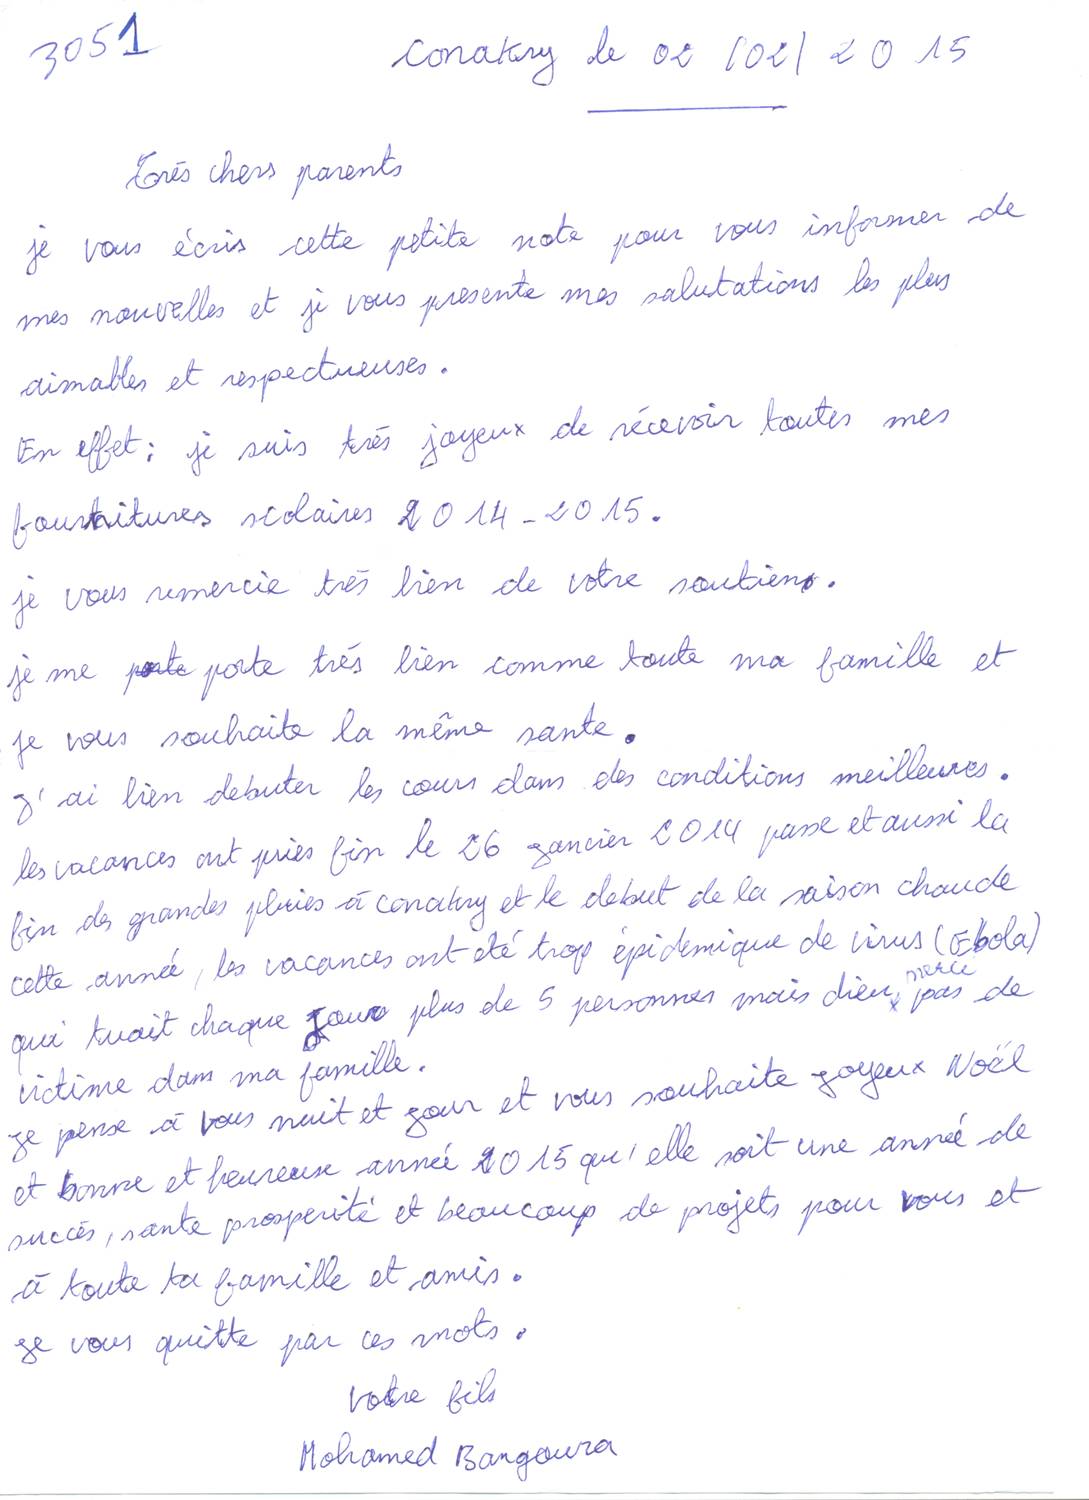 3051
Conakry le 02 /02/ 2015
Trés chers parents
je vous écris cette petite note pour vous informer de
mes nouvelles et je vous presente mes salutations les plus
aimables et respectueuses.
En effet; je suis trés joyeux de récevoir toutes mes
fournitures scolaires 2014-2015.
je vous remercie trés bien de votre soutien.
je me porte porte trés bien comme toute ma famille et
je vous souhaite la même sante.
J'ai bien debuter les cours dans des conditions meilleures.
les vacances ont pries fin le 26 Jancier 2014 passe et aussi la
fin des grandes pluies à conakry et le debut de la saison chaude
cette année, les vacances ont été trop épidemique de virus (Ebola)
qui tuait chaque Jour plus de 5 personnes mais dieu merci pas de
victime dans ma famille.
Je pense à vous nuit et Jour et vous souhaite Joyeux Noël
et bonne et heureuse année 2015 qu'elle soit une année de
succés, sante prosperité et beaucoup de projets pour vous et
à toute ta famille et amis.
Je vous quitte par ces mots.
Votre fils
Mohamed Bangoura